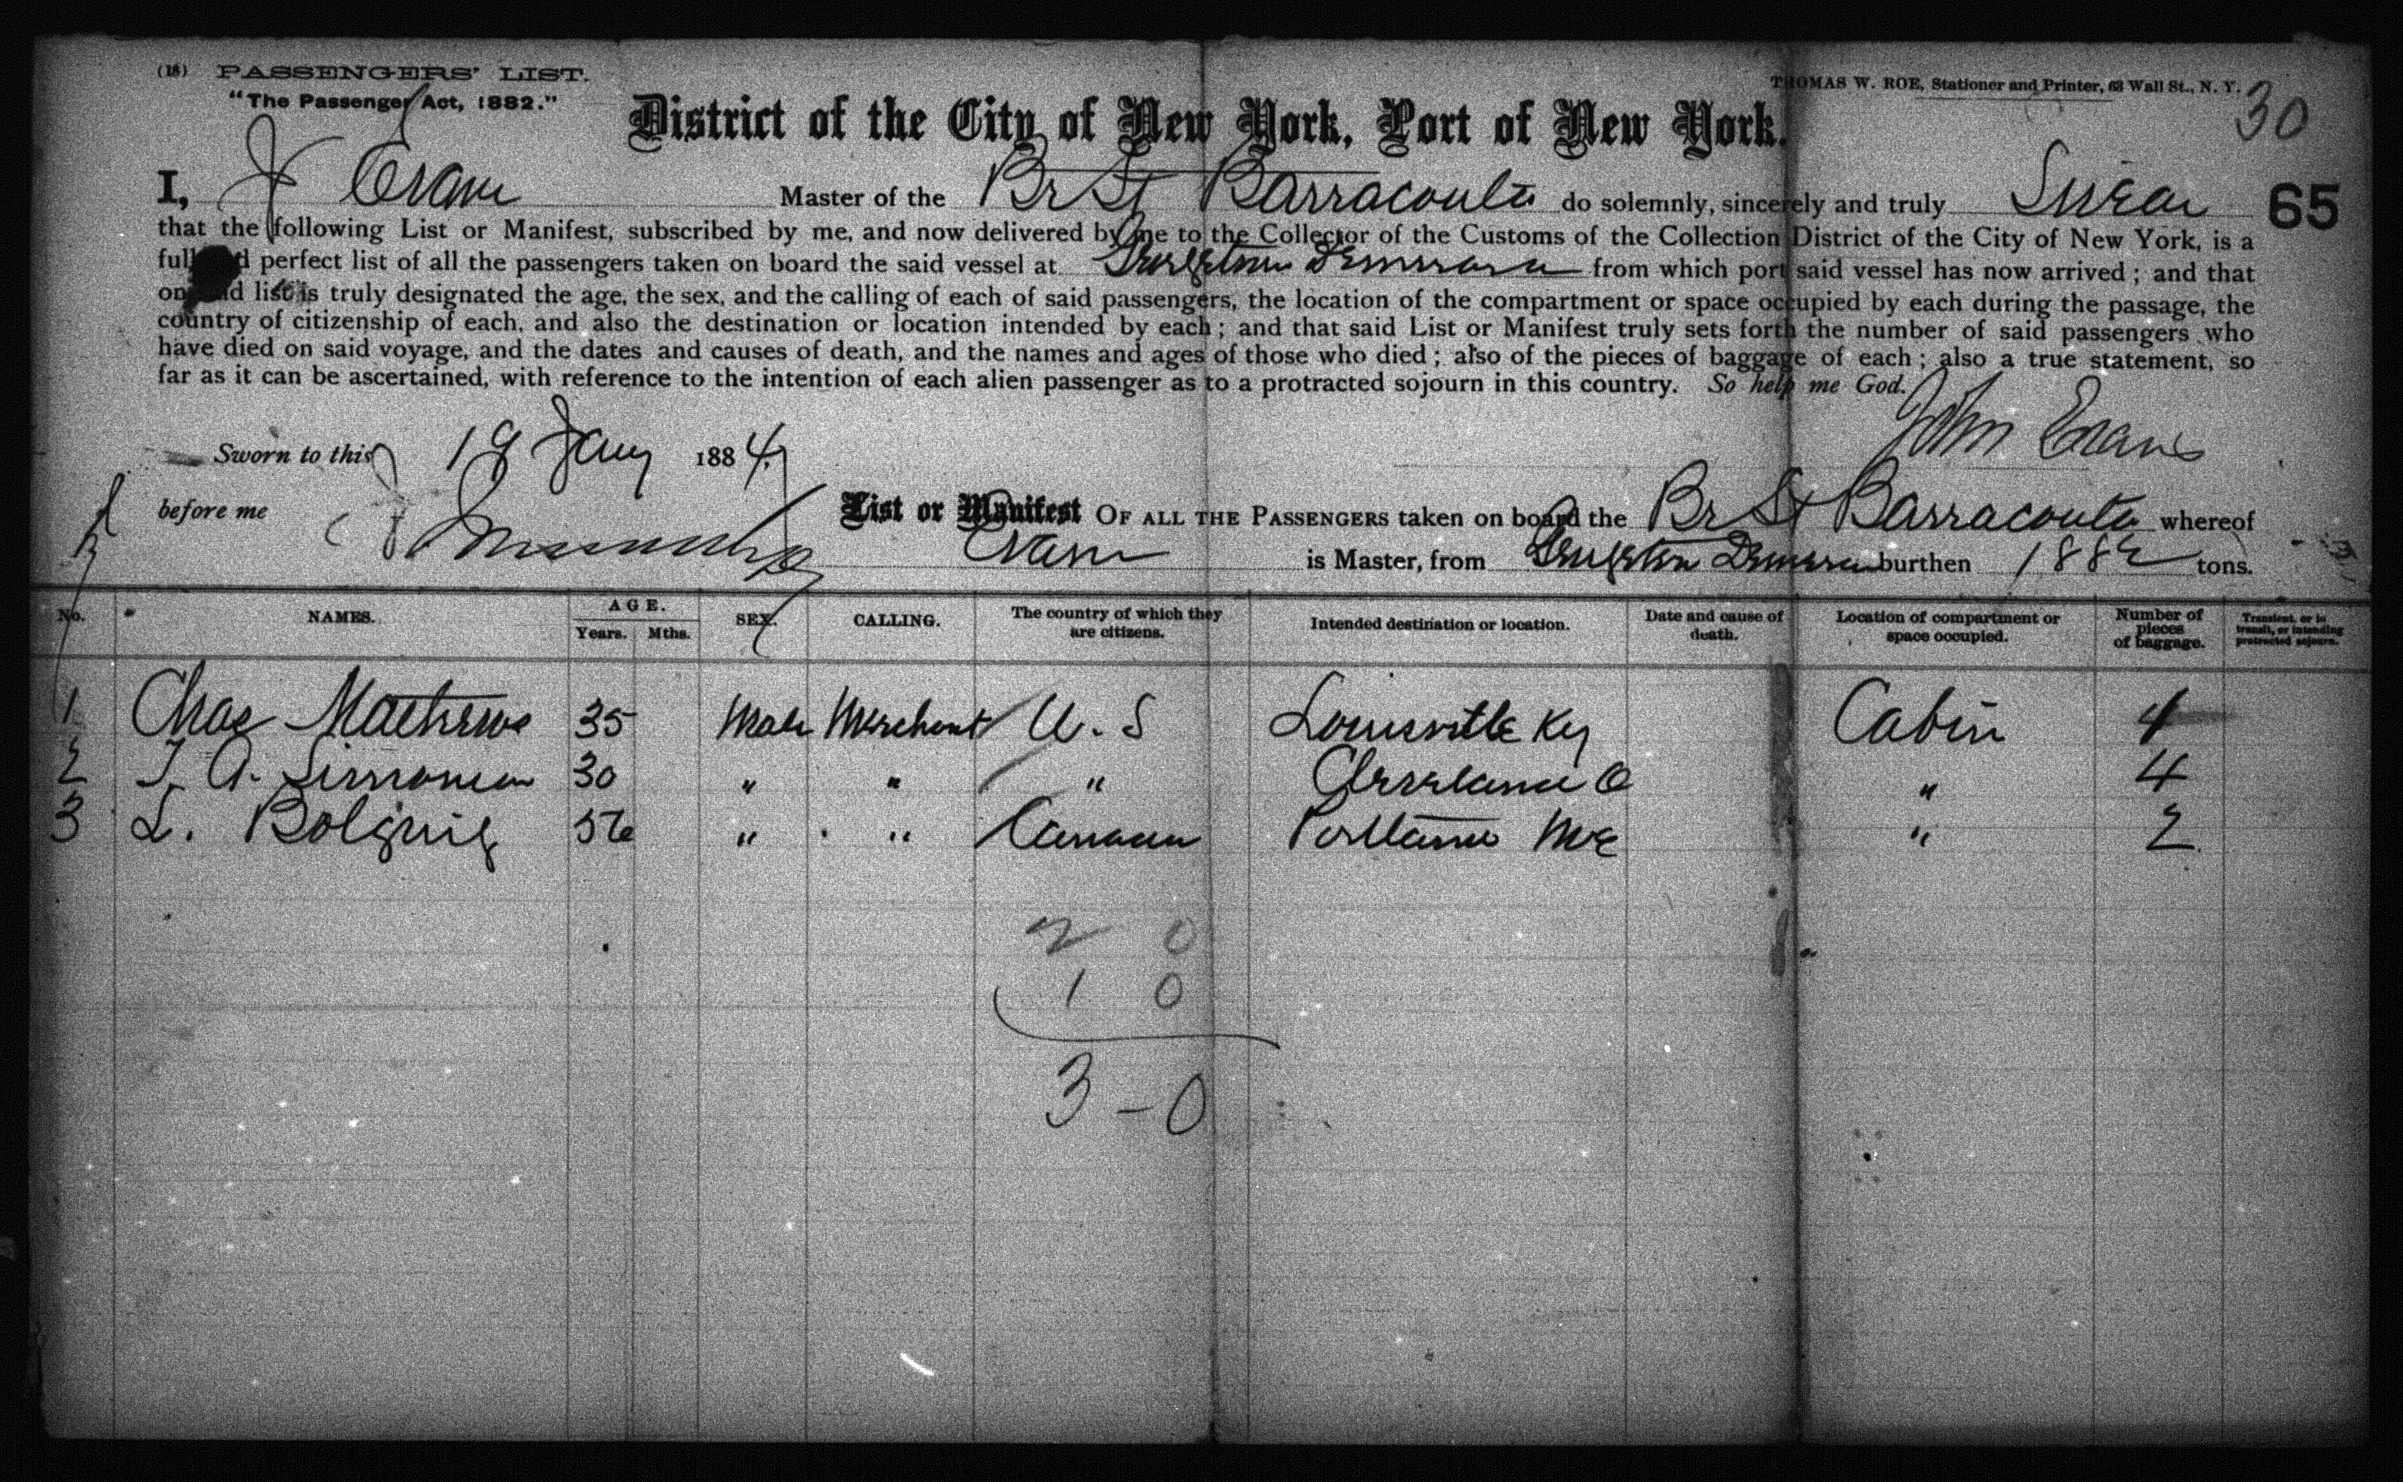 (18) PASSENGERS' LIST.
"The Passenger Act, 1882."
THOMAS W. ROE, Stationer and Printer, 63 Wall St., N. Y.
30
District of the City of New York, Port of New York.
65
I, J Evans Master of the Br St Barracouta do solemnly, sincerely and truly Swear
that the following List or Manifest, subscribed by me, and now delivered by me to the Collector of the Customs of the Collection District of the City of New York, is a
full d perfect list of all the passengers taken on board the said vessel at Demerara from which port said vessel has now arrived; and that
on d list is truly designated the age, the sex, and the calling of each of said passengers, the location of the compartment or space occupied by each during the passage, the
country of citizenship of each, and also the destination or location intended by each; and that said List or Manifest truly sets forth the number of said passengers who
have died on said voyage, and the dates and causes of death, and the names and ages of those who died; also of the pieces of baggage of each; also a true statement, so
far as it can be ascertained, with reference to the intention of each alien passenger as to a protracted sojourn in this country. So help me God.
John Evans
Sworn to this 19 Jany 1884
before me
List or Manifest OF ALL THE PASSENGERS taken on board the Br St Barracouta whereof
Evans is Master, from Demerara burthen 1882 tons.
No. NAMES. AGE. Years. Mths. SEX. CALLING. The country of which they are citizens. Intended destination or location. Date and cause of death. Location of compartment or space occupied. Number of pieces of baggage. Transient, or in transit, or intending protracted sojourn.
1 Chas Mathews 35 Male Merchant U. S Louisville Ky Cabin 4
2 T. A. 30 " " " Cleveland O " 4
3 L. 56 " " Canada Portland Me " 2
2 0
1 0
3 - 0